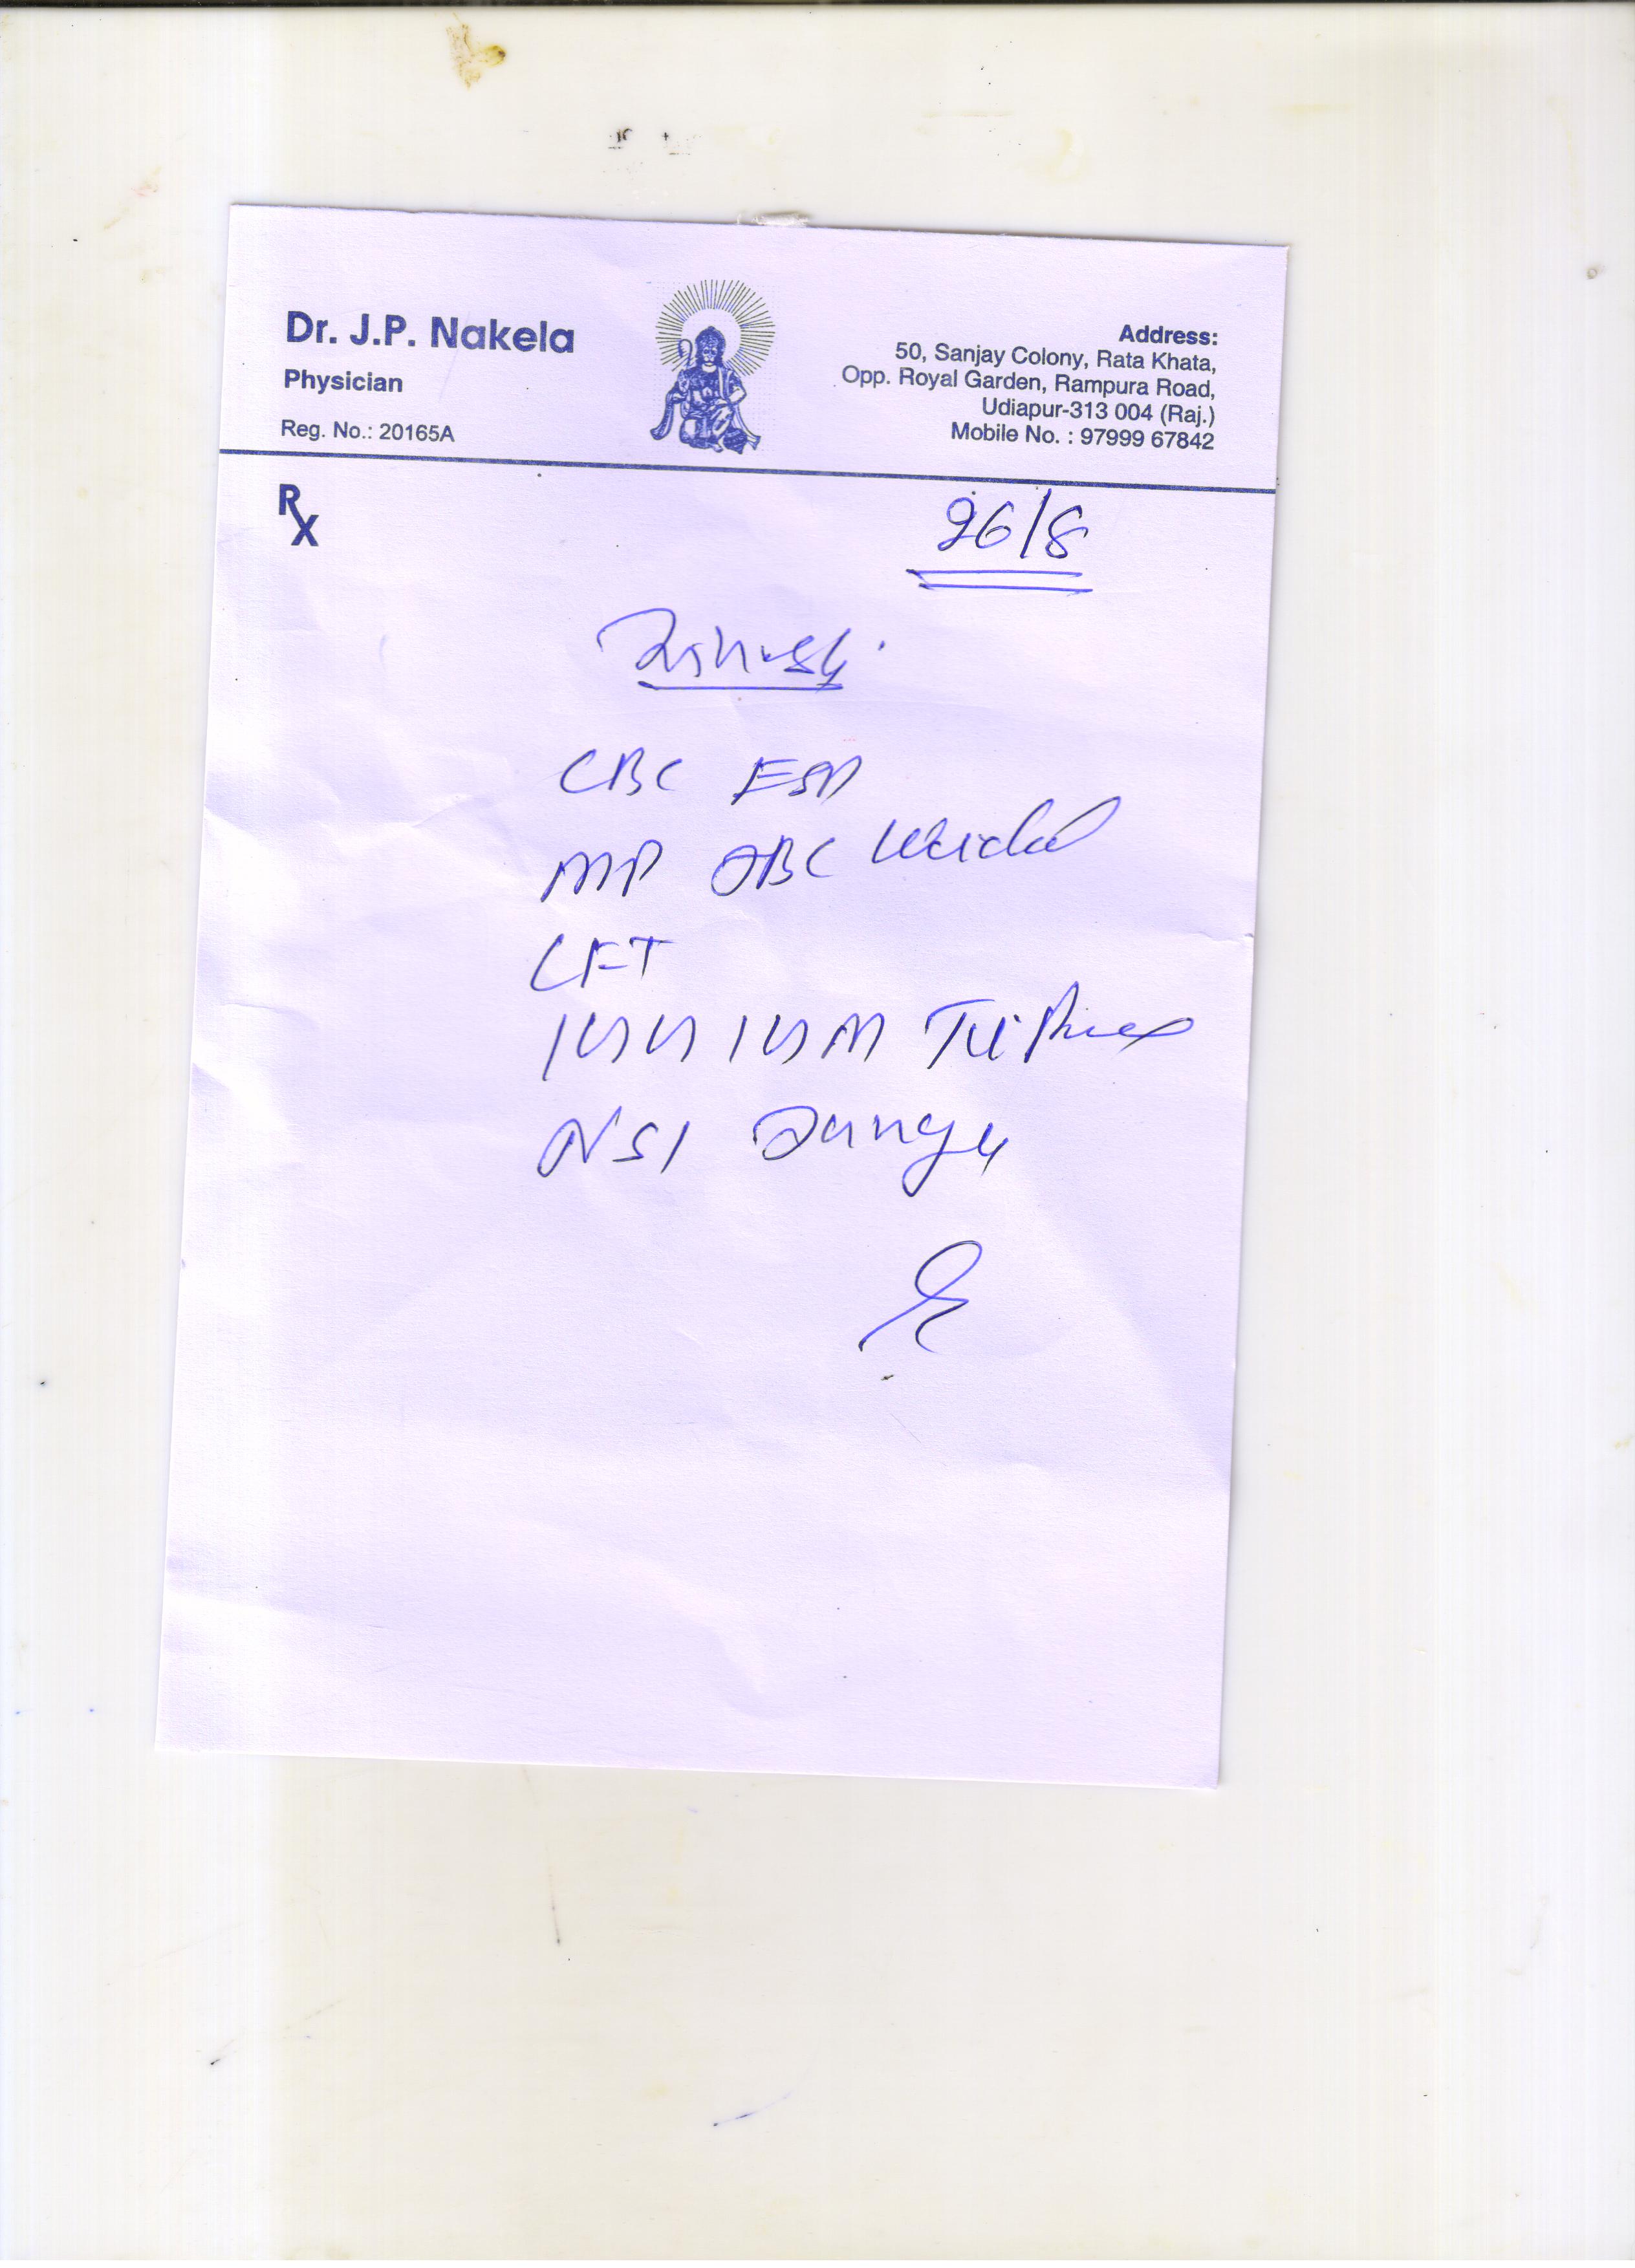 Dr. J.P. Nakela
Physician
Reg. No.: 20165A
Address:
50, Sanjay Colony, Rata Khata,
Opp. Royal Garden, Rampura Road,
Udiapur-313 004 (Raj.)
Mobile No. : 97999 67842
Rx
26/8
CBC ESR
MP Widal
LFT
NS1